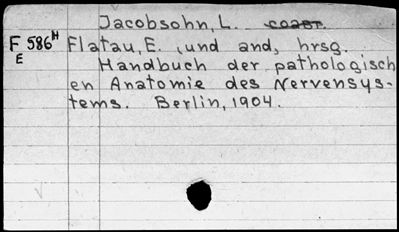 Jacobsohn, L.
F 586 H Flatau, E. (und and, hrsg.
E
Handbuch der pathologisch
en Anatomie des Nervensys-
tems. Berlin, 1904.